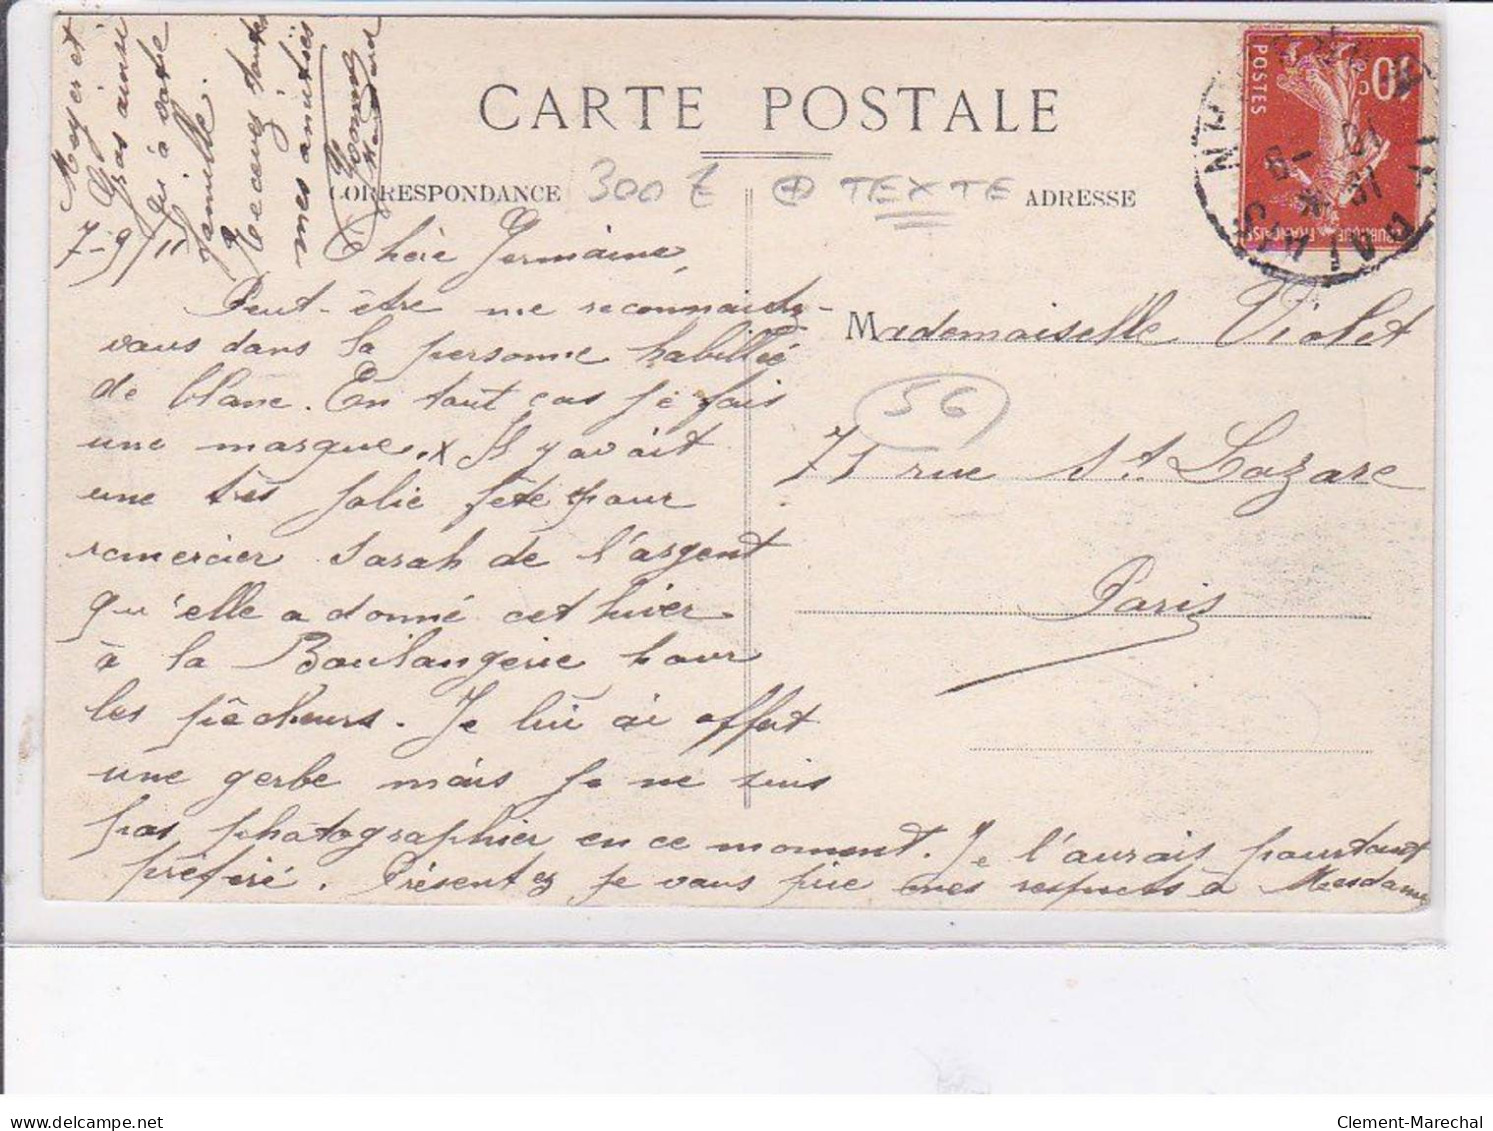 CARTE POSTALE
CORRESPONDANCE
300 F + TEXTE
ADRESSE
POSTES
10 c
7-9/11
Chère Germaine,
Peut-être me reconnaitrez-
vous dans la personne habillée
de blanc. En tout cas je fais
une marque. x Il y avait
une très jolie fête pour
remercier Sarah de l'argent
qu'elle a donné cet hiver
à la Boulangerie pour
les pêcheurs. Je lui ai offert
une gerbe mais je ne suis
pas photographier en ce moment. Je l'aurais pourtant
préféré. Présentez je vous prie mes respects à Mesdames
Mayer et
Gras ainsi
qu'à votre
famille.
Recevez toutes
mes amitiés
Mademoiselle Violet
56
71 rue St. Lazare
Paris
Clement-Marechal